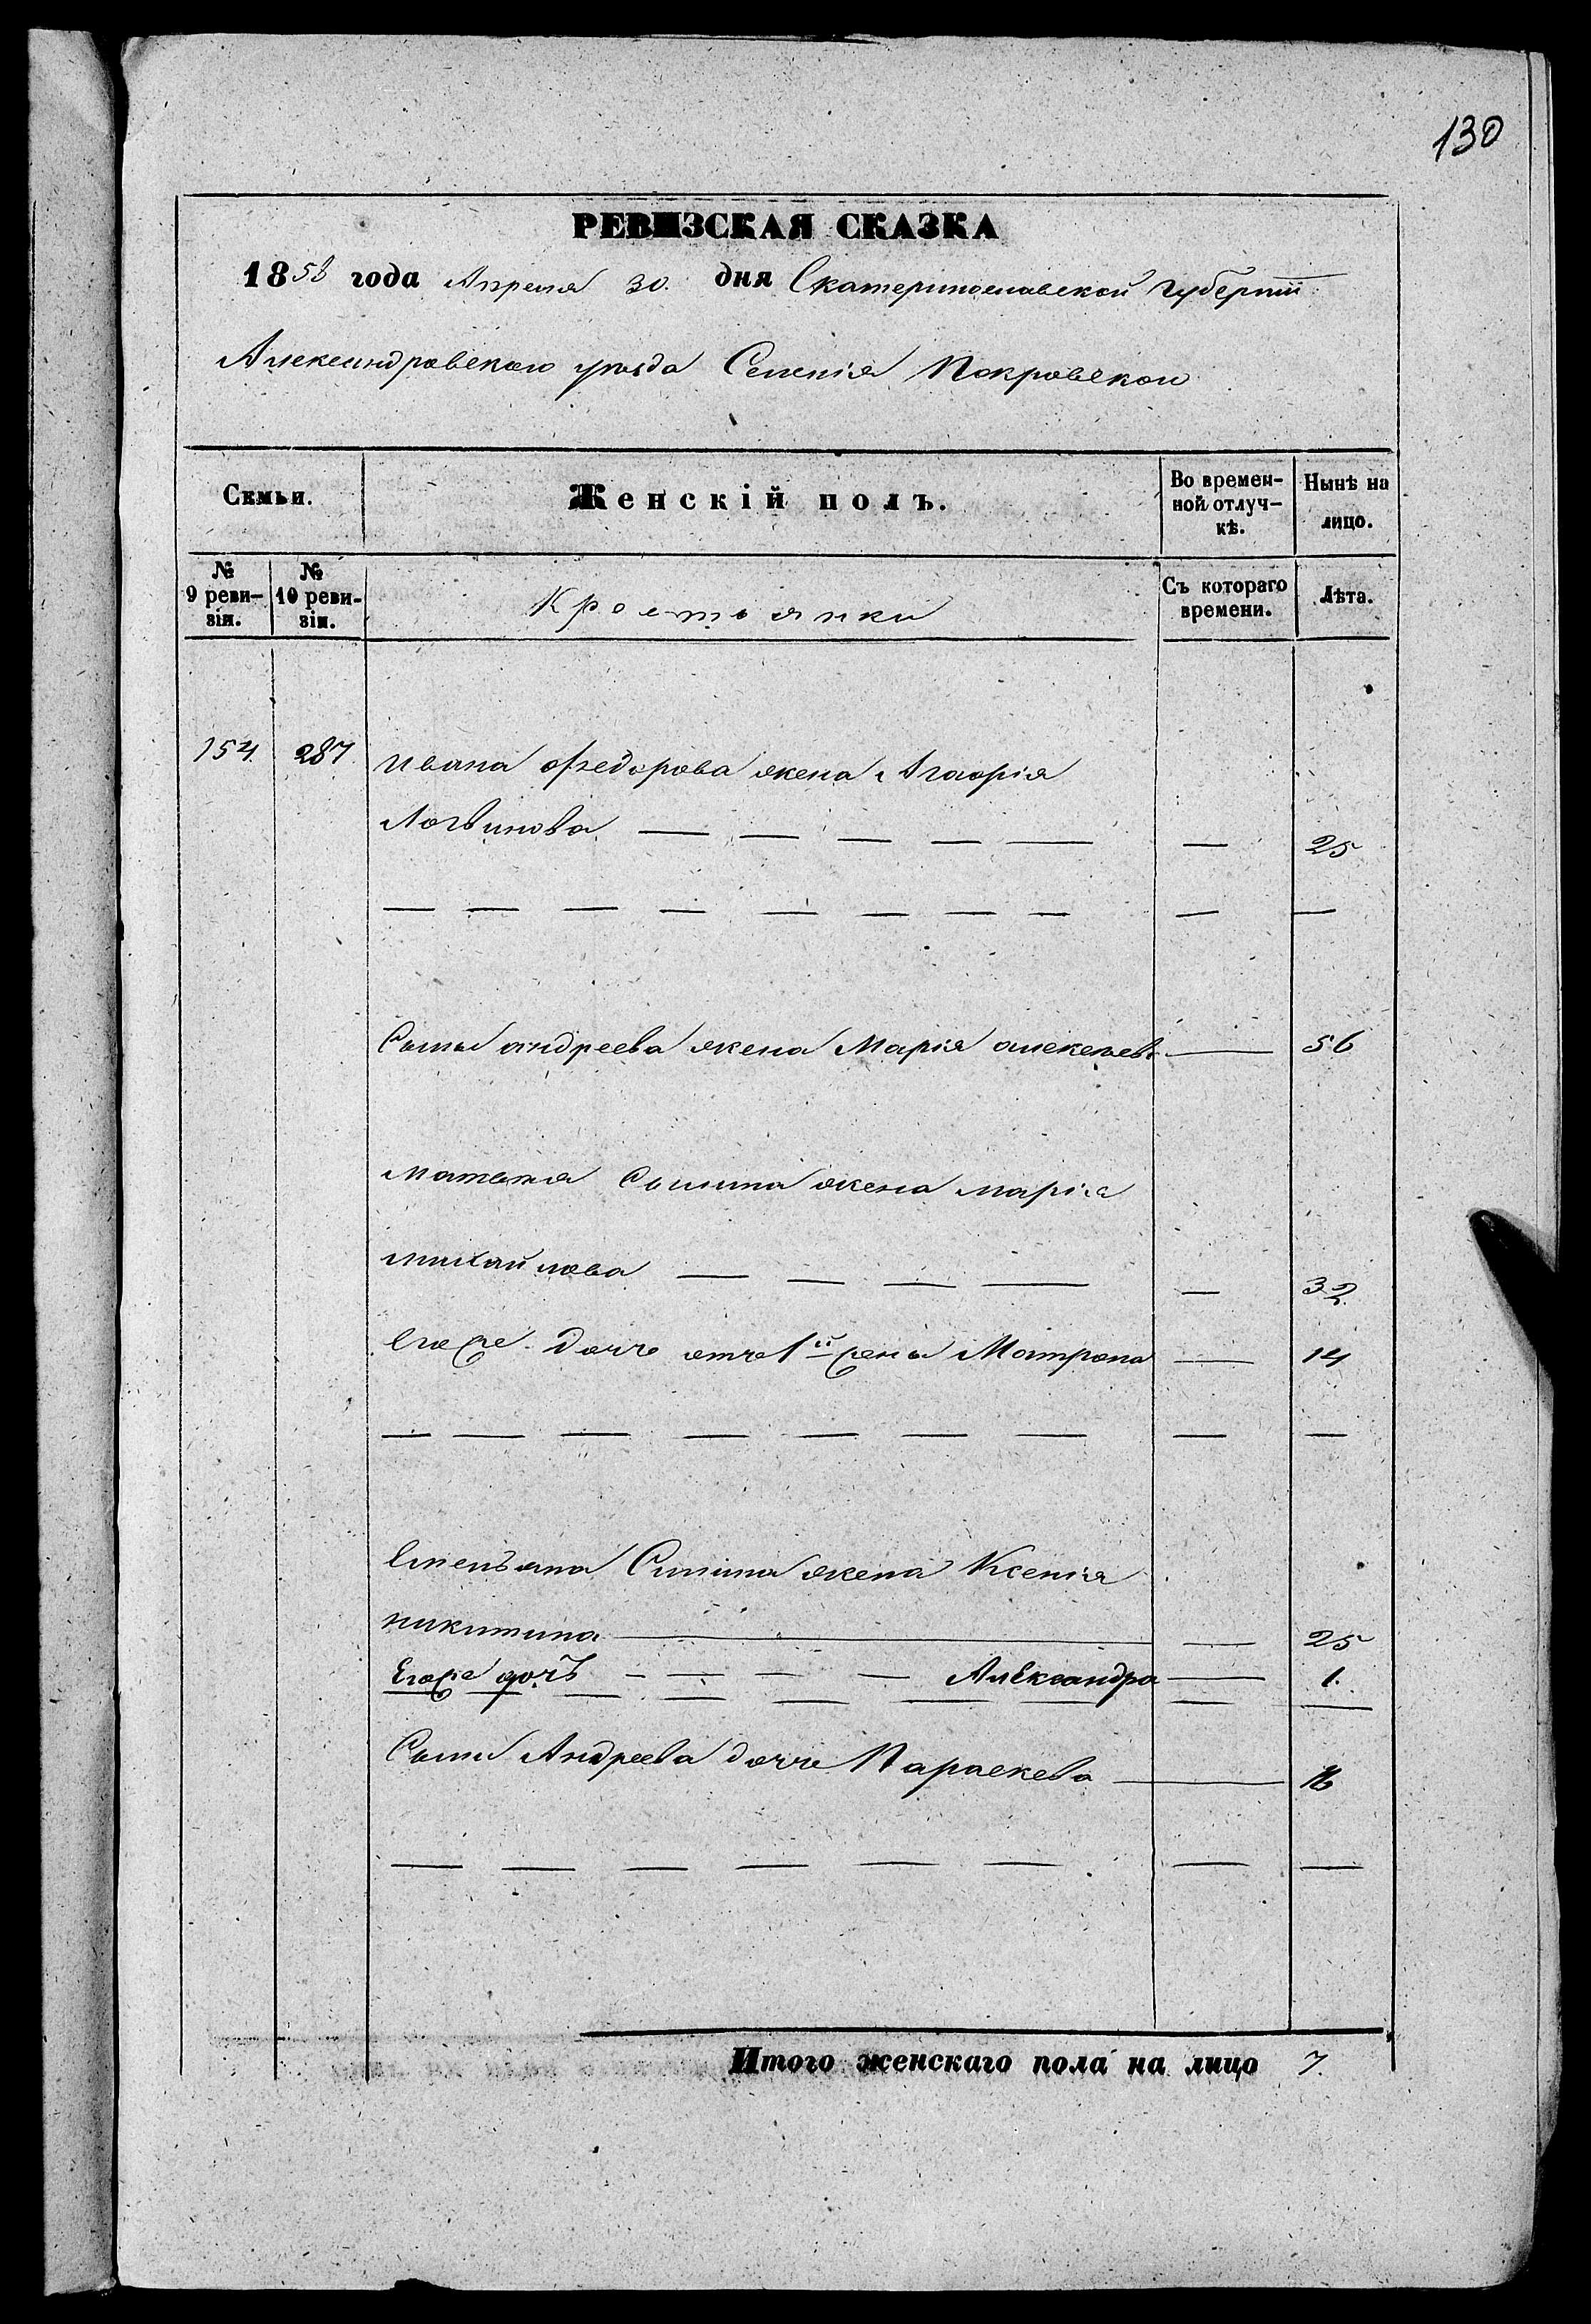 130
РЕВИЗСКАЯ СКАЗКА
1858 года Апреля 30. дня Екатеринославской Губерніи
Александровскаго уѣзда Селенія Покровскаго
Семьи.
Женскій полъ.
Во времен-
ной отлуч-
кѣ.
Нынѣ на
лицо.
№
9 реви-
зіи.
№
10 реви-
зіи.
Крестьянки
Съ котораго
времени.
Лѣта.
154. 287. Ивана Федорова жена
Логвинова — — — — — — 25
— — — — — — — — — —
андреева жена Марія алексѣева — 56
Матвѣя жена марія
михайлова — — — — — 32.
Его же дочь отъ 1й жены Матрона — 14
— — — — — — — — —
жена Ксенія
никитина — — 25
Его же дочь — — — — Александра — 1.
— — — — — — — —
Андреева дочь Параскева — 16
— — — — — — — —
Итого женскаго пола на лицо 7.